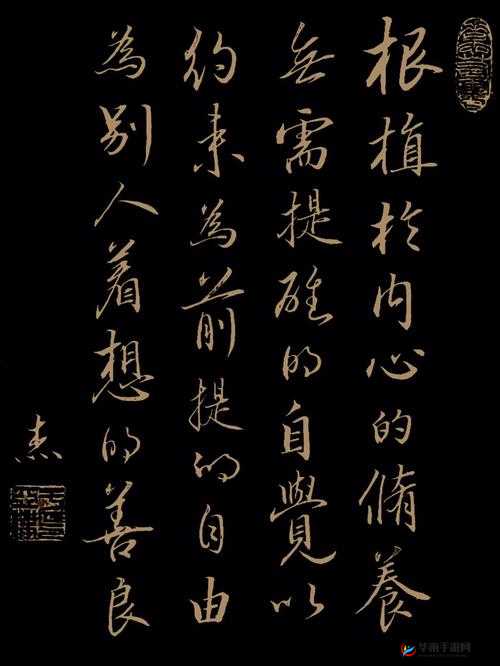 根植於内心的脩養
無需提醒的自覺以
約束為前提的自由
為别人着想的善良
杰
华海手游网